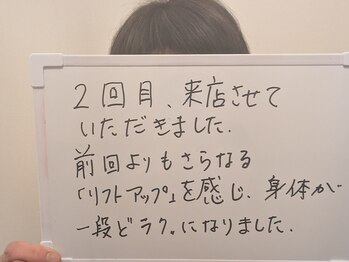 2回目、来店させて
いただきました.
前回よりもさらなる
「リフトアップ」を感じ、身体が
一段とラク。になりました.